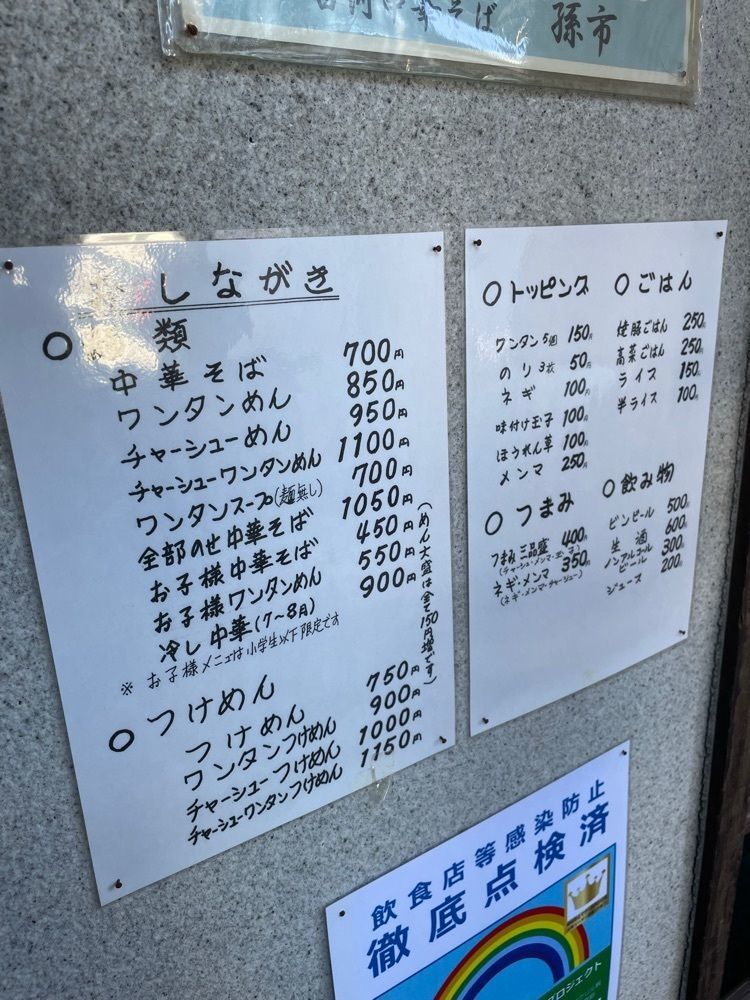 中華そば 孫市
しながき
○ 類
中華そば 700円
ワンタンめん 850円
チャーシューめん 950円
チャーシューワンタンめん 1100円
ワンタンスープ(麺無し) 700円
全部のせ中華そば 1050円
お子様中華そば 450円
お子様ワンタンめん 550円
冷し中華(7〜8月) 900円
※ お子様メニューは小学生以下限定です
(めん大盛は全て150円増です)
○ つけめん
つけめん 750円
ワンタンつけめん 900円
チャーシューつけめん 1000円
チャーシューワンタンつけめん 1150円
○ トッピング
ワンタン5個 150円
のり3枚 50円
ネギ 100円
味付け玉子 100円
ほうれん草 100円
メンマ 250円
○ つまみ
つまみ三品盛 400円
(チャーシュー・メンマ・玉子)
ネギ・メンマ 350円
(ネギ・メンマ・チャーシュー)
○ ごはん
焼豚ごはん 250円
高菜ごはん 250円
ライス 150円
半ライス 100円
○ 飲み物
ビンビール 500円
生酒 600円
ノンアルコールビール 300円
ジュース 200円
飲食店等感染防止
徹底点検済
プロジェクト